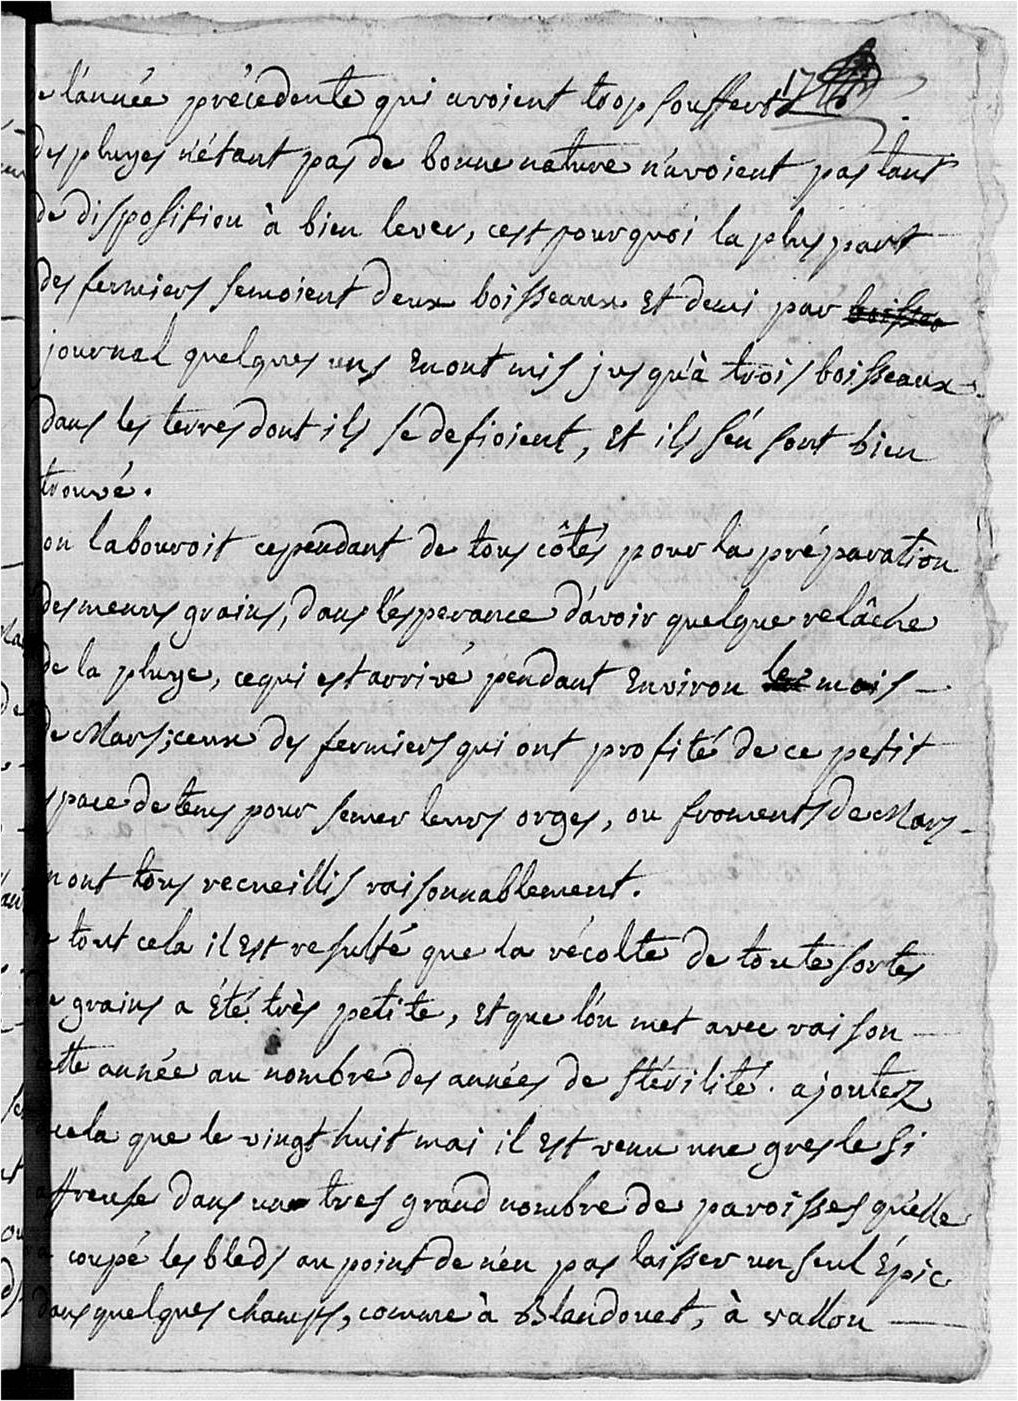 de l'année précédente qui avoient trop souffert 17
des pluyes n'étant pas de bonne nature n'avoient pas tant
de disposition à bien lever, cest pourquoi la plus part
des fermiers semoient deux boisseaux et demi par boissea
journal quelques uns en ont mis jusqu'à trois boisseaux
dans les terres dont ils se defioient, et ils s'en sont bien
trouvé.
on labouroit cependant de tous côtés pour la préparation
des menus grains, dans l'esperance d'avoir quelque relâche
de la pluye, ce qui est arrivé pendant environ le mois
de Mars; ceux des fermiers qui ont profité de ce petit
space de tems pour semer leurs orges, ou froments de Mars
n ont tous recueillis raisonnablement.
e tout cela il est resulté que la récolte de toute sortes
e grains a été très petite, et que l'on met avec raison
ette année au nombre des années de stérilité. ajoutez
cela que le vingt huit mai il est venu une gresle si
affreuse dans un tres grand nombre de paroisses qu'elle
a coupé les bleds au point de n'en pas laisser un seul épic
dans quelques champs, comme à Blandouet, à vallon